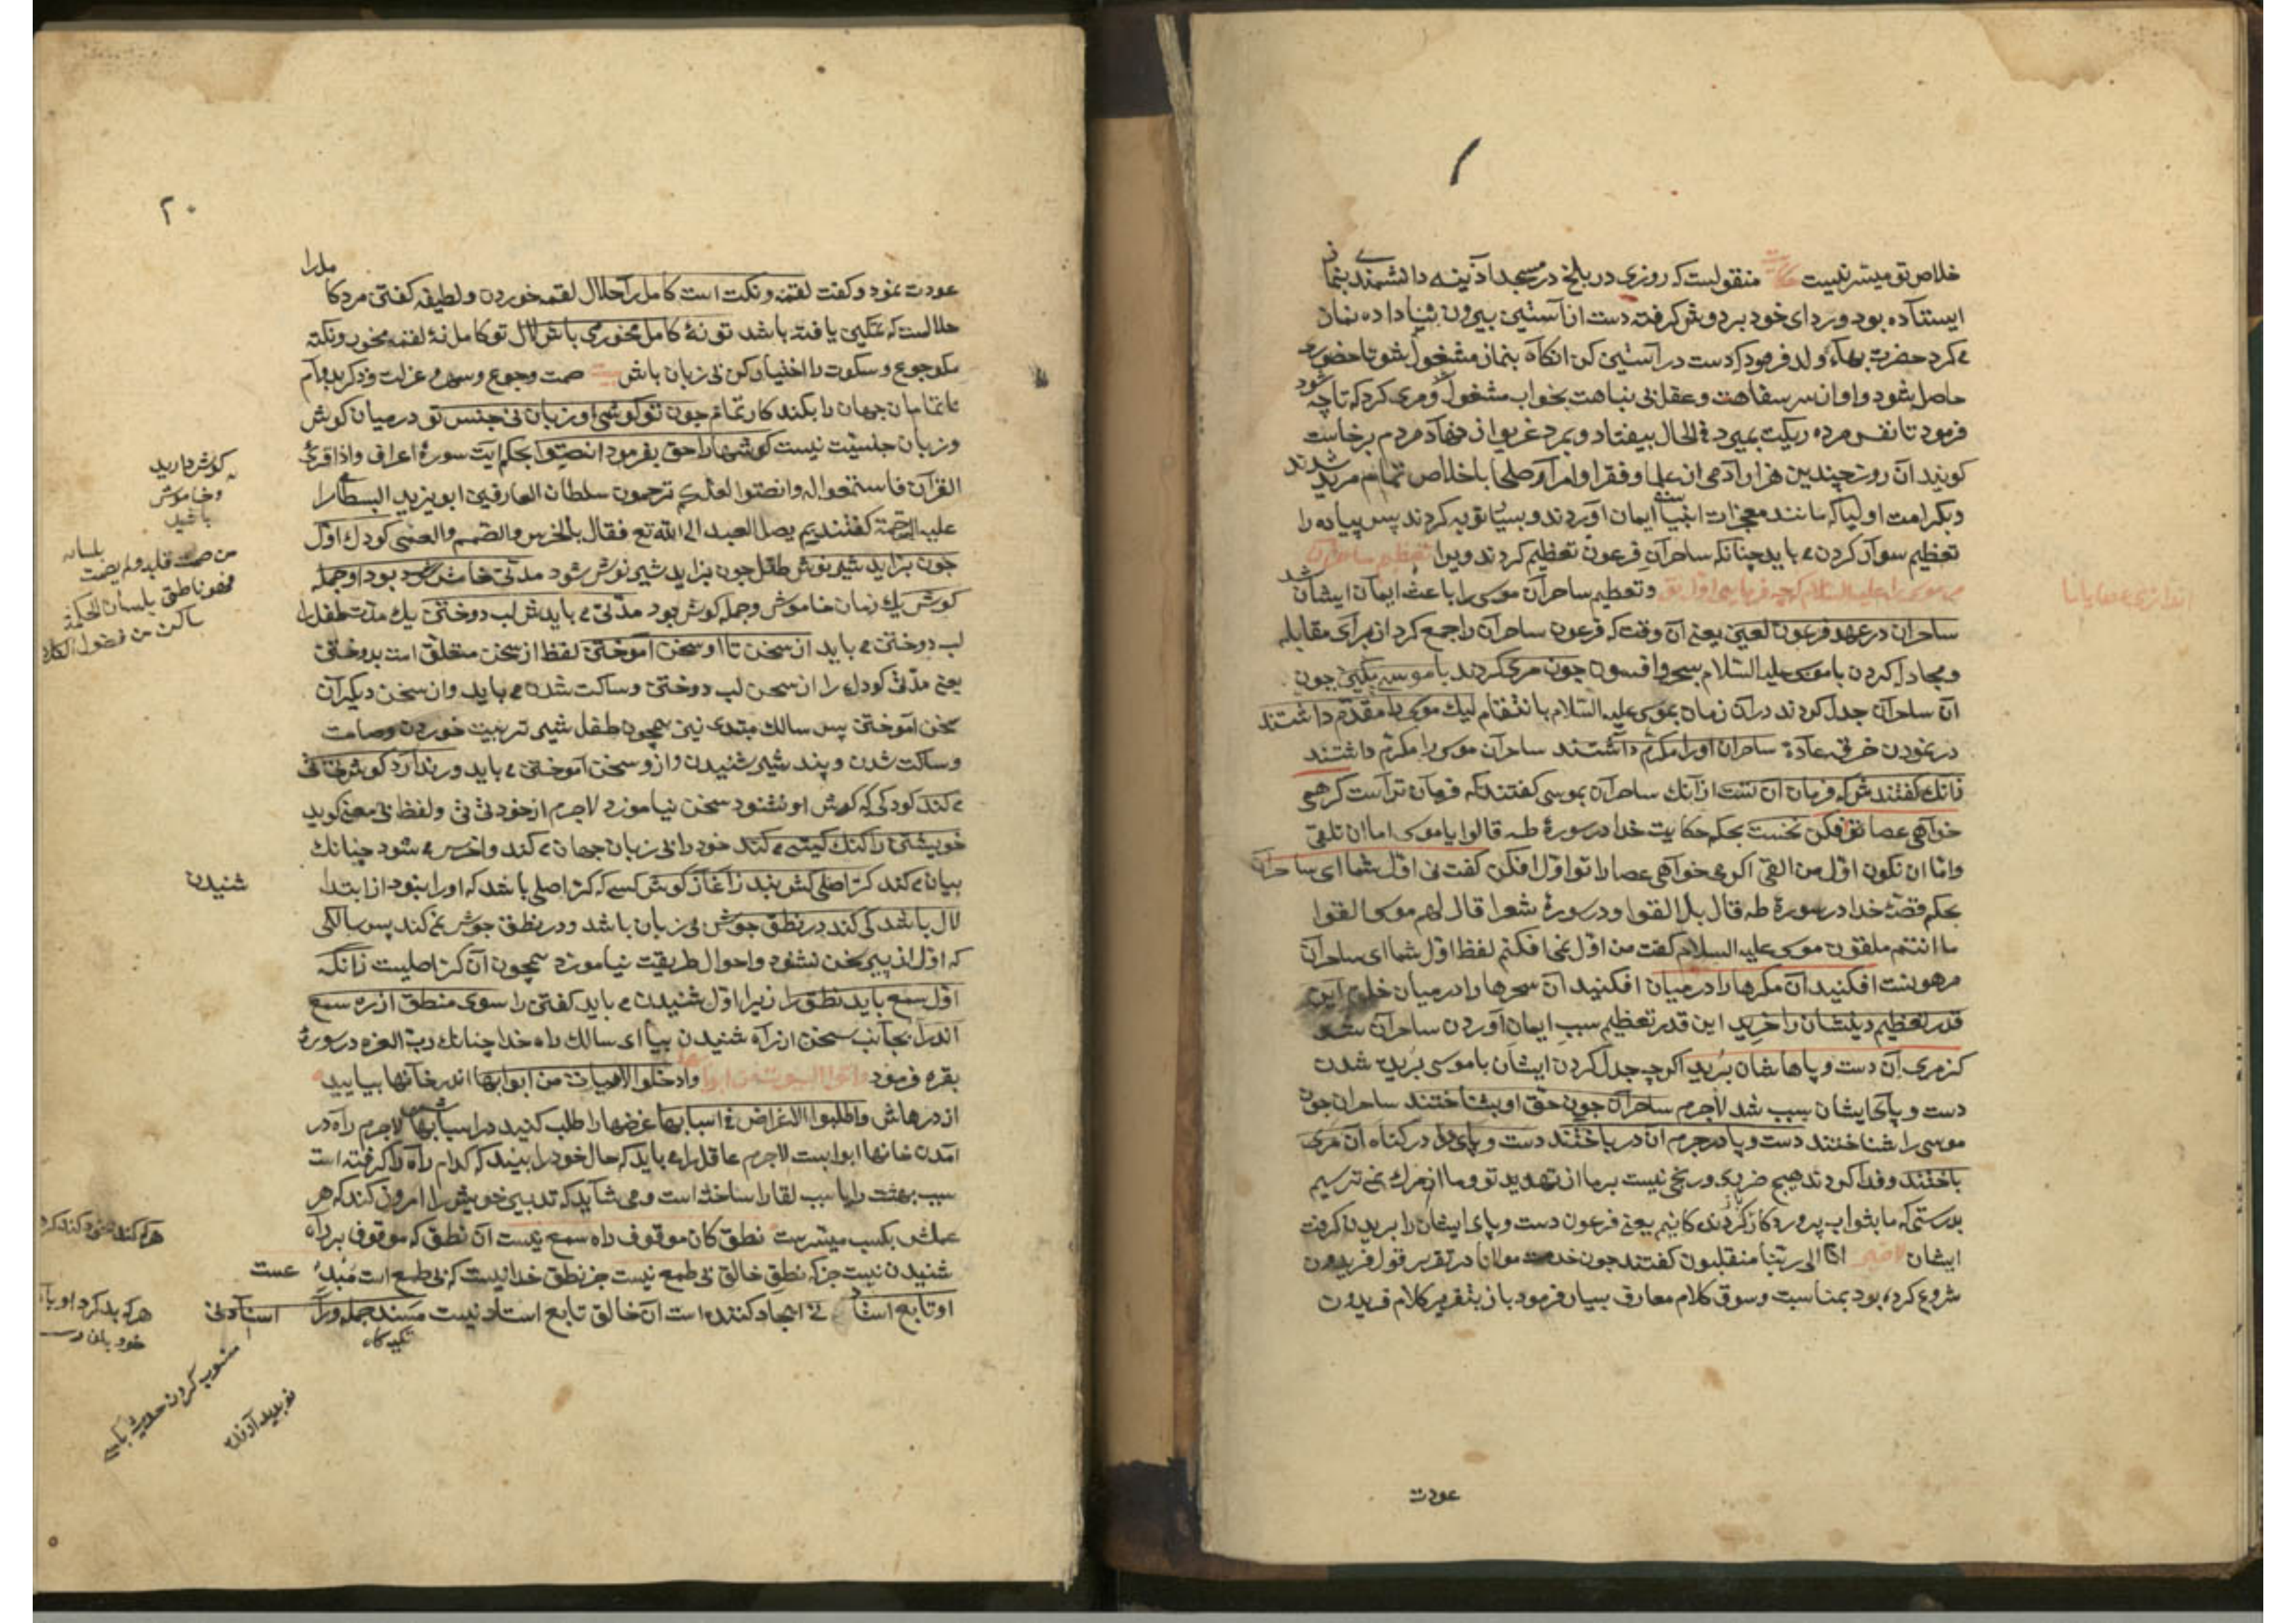 خلاص تو میسر نیست حکایت منقولست که روزی در بلخ در مسجد آذینه دانشمندی بنماز
ایستاده بود و ردای خود بر دوش گرفته دست از آستین بیرون نیاداده نماز
می کرد حضرت بهاء ولد فرمود که دست در آستین کن آنگاه بنماز مشغول شو تا حضوری
حاصل شود او از سر سفاهت و عقل بی نباهت بجواب مشغول و مری کرد که تا چه شود
فرمود تا نفس مرده ریکت بمیرد فی الحال بیفتاد و بمرد غریو از نهاد مردم برخاست
کویند آن روز چندین هزار آدمی از علما و فقرا و امرا و صلحا باخلاص تمام مرید شدند
و بکرامت اولیا که مانند معجزات انبیاست ایمان آوردند و بسیار توبه کردند پس پیاده را
تعظیم سوار کردن می باید چنانکه ساحران فرعون تعظیم کردند ویرا تعظیم ساحران
مر موسی را علیه السلام که چه فرمایی اول تو اندازی عصا یا ما
و تعظیم ساحران موسی را باعث ایمان ایشان شد
ساحران در عهد فرعون لعین یعنی آن وقت که فرعون ساحران را جمع کرد از برای مقابله
و مجادله کردن با موسی علیه السلام بسحر و افسون چون مری کردند با موسی بکین چون
آن ساحران جدل کردند در آن زمان بموسی علیه السلام بانتقام لیک موسی را مقدم داشتند
در نمودن خرق عادة ساحران او را مکرم داشتند ساحران موسی را مکرم داشتند
زانک گفتندش که فرمان آن تست از آنک ساحران بموسی گفتند که فرمان تراست گر همی
خواهی عصا تو فکن نخست بحکم حکایت خدا در سورۀ طه قالوا یا موسی اما ان تلقی
واما ان نکون اول من القی اگر می خواهی عصا را تو اول افکن گفت نی اول شما ای ساحران
بحکم قصۀ خدا در سورۀ طه قال بل القوا و در سورۀ شعرا قال لهم موسی القوا
ما انتم ملقون موسی علیه السلام گفت من اول نمی افکنم لفظ اول شما ای ساحران
افکنید آن مکرها را در میان افکنید آن سحرها را در میان خلق این
قدر تعظیم دینشان را خرید این قدر تعظیم سبب ایمان آوردن ساحران شد
کز مری آن دست و پاهاشان برید اگرچه جدل کردن ایشان با موسی بریده شدن
دست و پای ایشان سبب شد لاجرم ساحران چون حق او بشناختند ساحران چون
موسی را شناختند دست و پا در جرم آن در باختند دست و پای در کناه آن مری
باختند و فدا کردند هیچ ضرری و رنجی نیست بر ما از تهدید تو و ما از مرک نمی ترسیم
بدرستی که ما بثواب پروردکار باز کردندکانیم یعنی فرعون دست و پای ایشان را بریدن کرفت
ایشان لاضیر انا الی ربنا منقلبون گفتند چون خدمت مولانا در تقریر قول فریدون
شروع کرده بود بمناسبت و سوق کلام معارف بسیار فرمود باز بتقریر کلام فریدون
عودت
۲۰
عودت نمود و گفت لقمه و نکت است کامل را حلال لقمه خوردن و لطیفه گفتن مرد کامل را
حلالست که تمکین یافته باشد تو نۀ کامل مخور می باش لال تو کامل نۀ لقمه مخور و نکته
مکو جوع و سکوت را اختیار کن بی زبان باش بیت صمت و جوع و سهر و عزلت و ذکر بدوام
ناتمامان جهان را بکند کار تمام چون تو گوشی او زبان نی جنس تو در میان گوش
و زبان جنسیت نیست گوشها را حق بفرمود انصتوا بحکم آیت سورۀ اعراف واذا قرئ
القرآن فاستمعوا له وانصتوا لعلکم ترحمون سلطان العارفین ابو یزید البسطامی را
علیه الرحمة گفتند بم یصل العبد الی الله تع فقال بالخرس والصمم والعمی کودک اول
چون بزاید شیر نوش طفل چون بزاید شیر نوش شود مدتی خامش بود او جمله
گوش یک زمان خاموش و جمله گوش بود مدتی می بایدش لب دوختن یک مدت طفل را
لب دوختن می باید از سخن تا او سخن آموختن لفظ از سخن متعلق است بدوختن
یعنی مدتی کودک را از سخن لب دوختن و ساکت شدن می باید و از سخن دیگران
سخن آموختن پس سالک مبتدی نیز همچون طفل شیر تربیت خوردن و صامت
و ساکت شدن و پند شیر شنیدن و ازو سخن آموختن می باید ور ندارد گوش
می کند کودکی که گوش او نشنود سخن نیاموزد لاجرم از خود تی تی و لفظ بی معنی گوید
خویشتن را گنگ گیتی می کند خود را بی زبان جهان می کند و اخرس می شود چنانک
بیان می کند کر اصلی کش نبد زآغاز گوش کسی که کر اصلی باشد که او را نبود از ابتدا شنیدن
لال باشد کی کند در نطق جوش بی زبان باشد و در نطق جوش نمی کند پس سالکی
که اول از پیر سخن نشنود و احوال طریقت نیاموزد همچون آن کر اصلیست زانکه
اول سمع باید نطق را زیرا اول شنیدن می باید گفتن را سوی منطق از ره سمع
اندرآ بجانب سخن از راه شنیدن بیا ای سالک راه خدا چنانک رب العزه در سورۀ
بقره فرمود واتوا البیوت من ابوابها وادخلوا الابیات من ابوابها اندر خانها بیایید
از درهاش واطلبوا الاغراض فی اسبابها غرضها را طلب کنید در اسبابها لاجرم راه در
آمدن خانها ابوابست لاجرم عاقل را می باید که حال خود را بیند که کدام راه را گرفته است
سبب بهشت را یا سبب لقا را ساخته است و می شاید که تدبیر خویش را امروز کند که هر
عملش بکسب میسرست نطق کان موقوف راه سمع نیست آن نطق که موقوف بر راه
شنیدن نیست جز که نطق خالق بی طمع نیست جز نطق خدا نیست که بی طمع است مبدع است
او تابع استاد نی ایجاد کننده است آن خالق تابع استاد نیست مسند جمله ورا استاد نی
تکیه کاه
گوش دارید
و خاموش
باشید
من صمت قلبه ولم یصمت بلسانه
فهو ناطق بلسان الحکمة
ساکن من فضول
هرکه بد کرد او
منسوب کردن حدیث بکسی
نو پدید آورنده